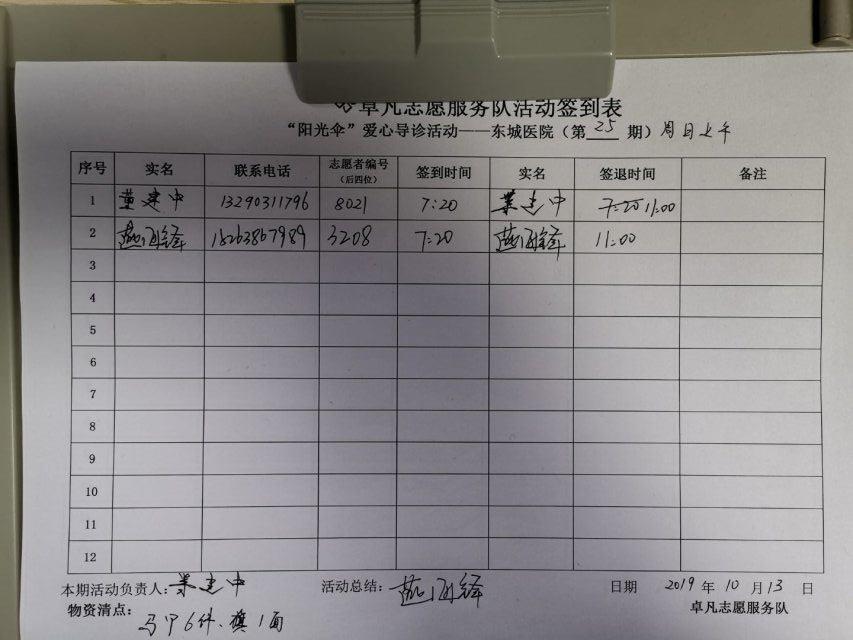 卓凡志愿服务队活动签到表
“阳光伞”爱心导诊活动——东城医院（第 25 期）周日上午
序号 实名 联系电话 志愿者编号（后四位） 签到时间 实名 签退时间 备注
1 董建中 13290311796 8021 7:20 董建中 7:20 11:00
2 18263867989 3208 7:20 11:00
3
4
5
6
7
8
9
10
11
12
本期活动负责人：董建中 活动总结： 日期 2019 年 10 月 13 日
物资清点：马甲6件、旗1面 卓凡志愿服务队